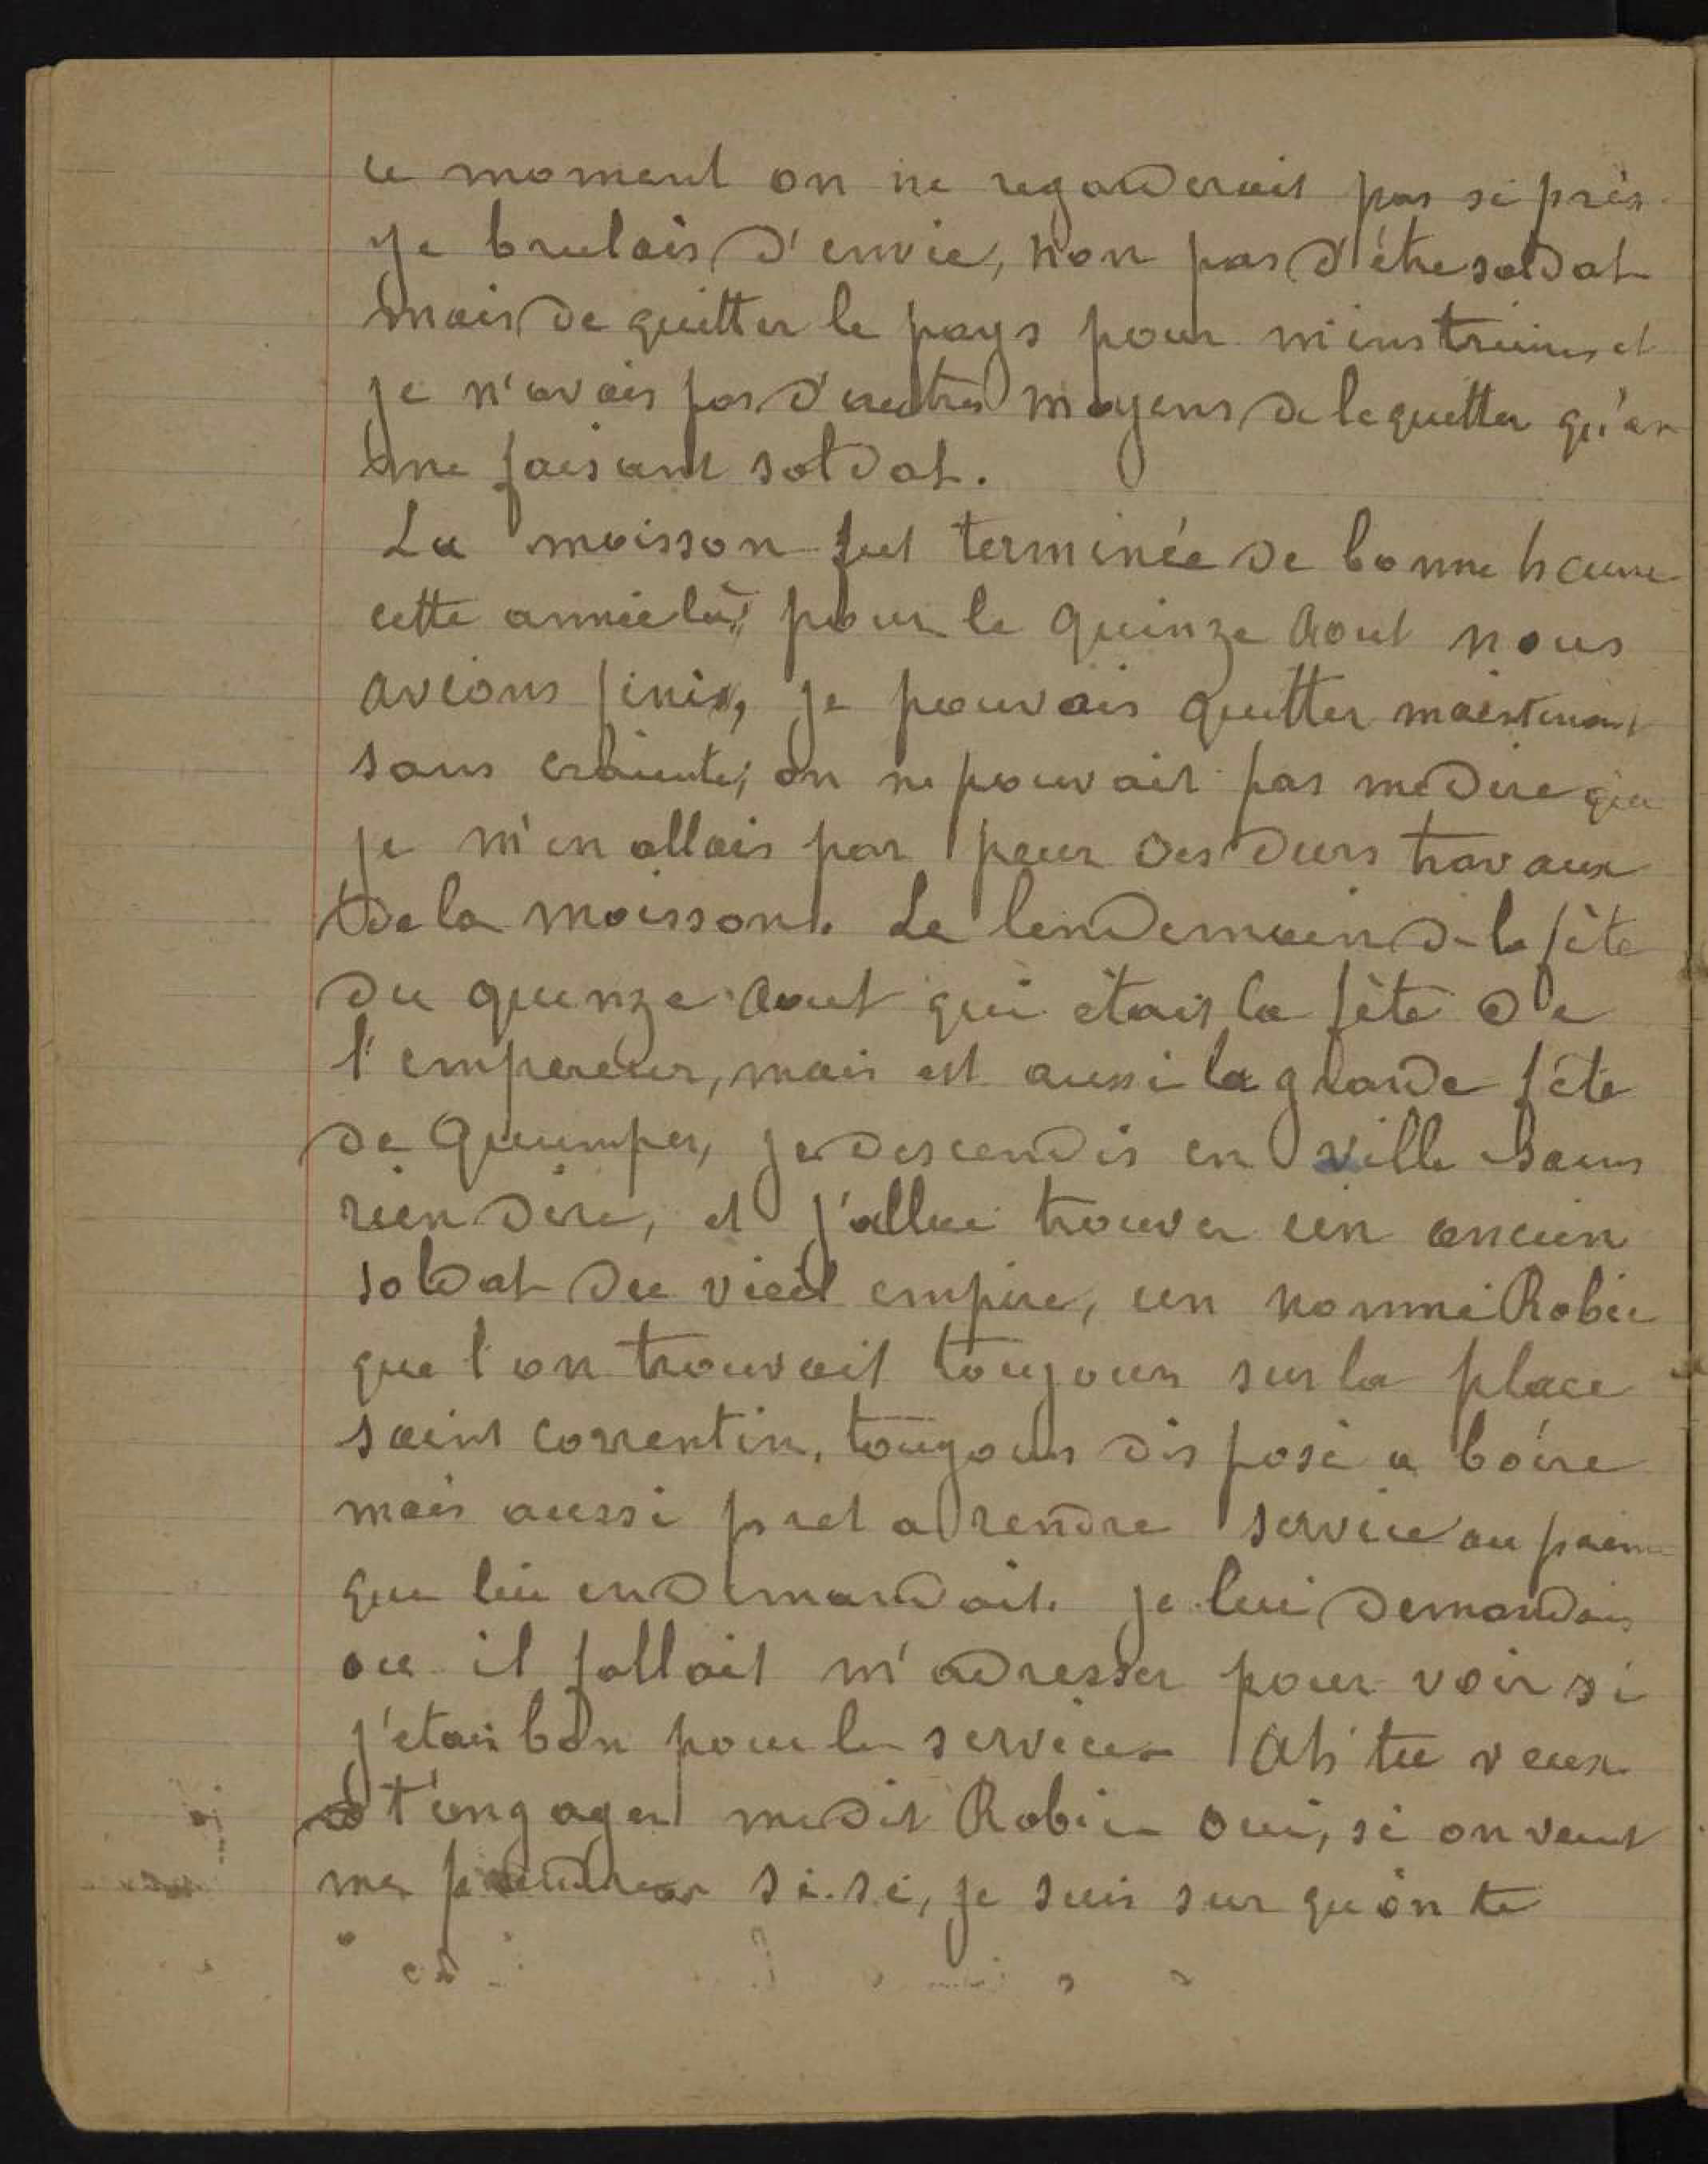 ce moment on ne regarderait pas si près.
Je brulais d'envie, non pas d'être soldat
mais de quitter le pays pour m'instruire, et
je n'avais pas d'autres moyens de le quitter qu'en
me faisant soldat.
La moisson fut terminée de bonne heure
cette année là; pour le quinze Aout nous
avions finis, je pouvais quitter maintenant
sans crainte, on ne pouvait pas me dire que
je m'en allais par peur des durs travaux
de la moisson. Le lendemain de la fête
du quinze Aout qui était la fête de
l'empereur, mais est aussi la grande fête
de Quimper, je descendis en ville sans
rien dire, et j'allai trouver un ancien
soldat du vieil empire, un nommé Robic
que l'on trouvait toujours sur la place
saint Correntin, toujours disposé a boire
mais aussi pret a rendre service au
qui lui en demandait. je lui demandais
ou il fallait m'adresser pour voir si
j'etais bon pour le service - Ah tu veux
t'engager me dit Robic - Oui, si on veut
me prendre - si.si, je suis sur qu'on te